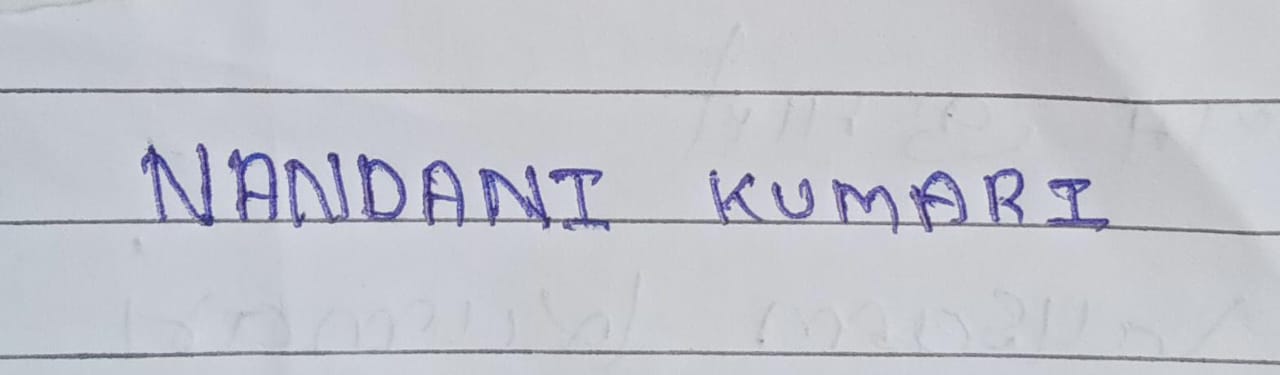 NANDANI KUMARI